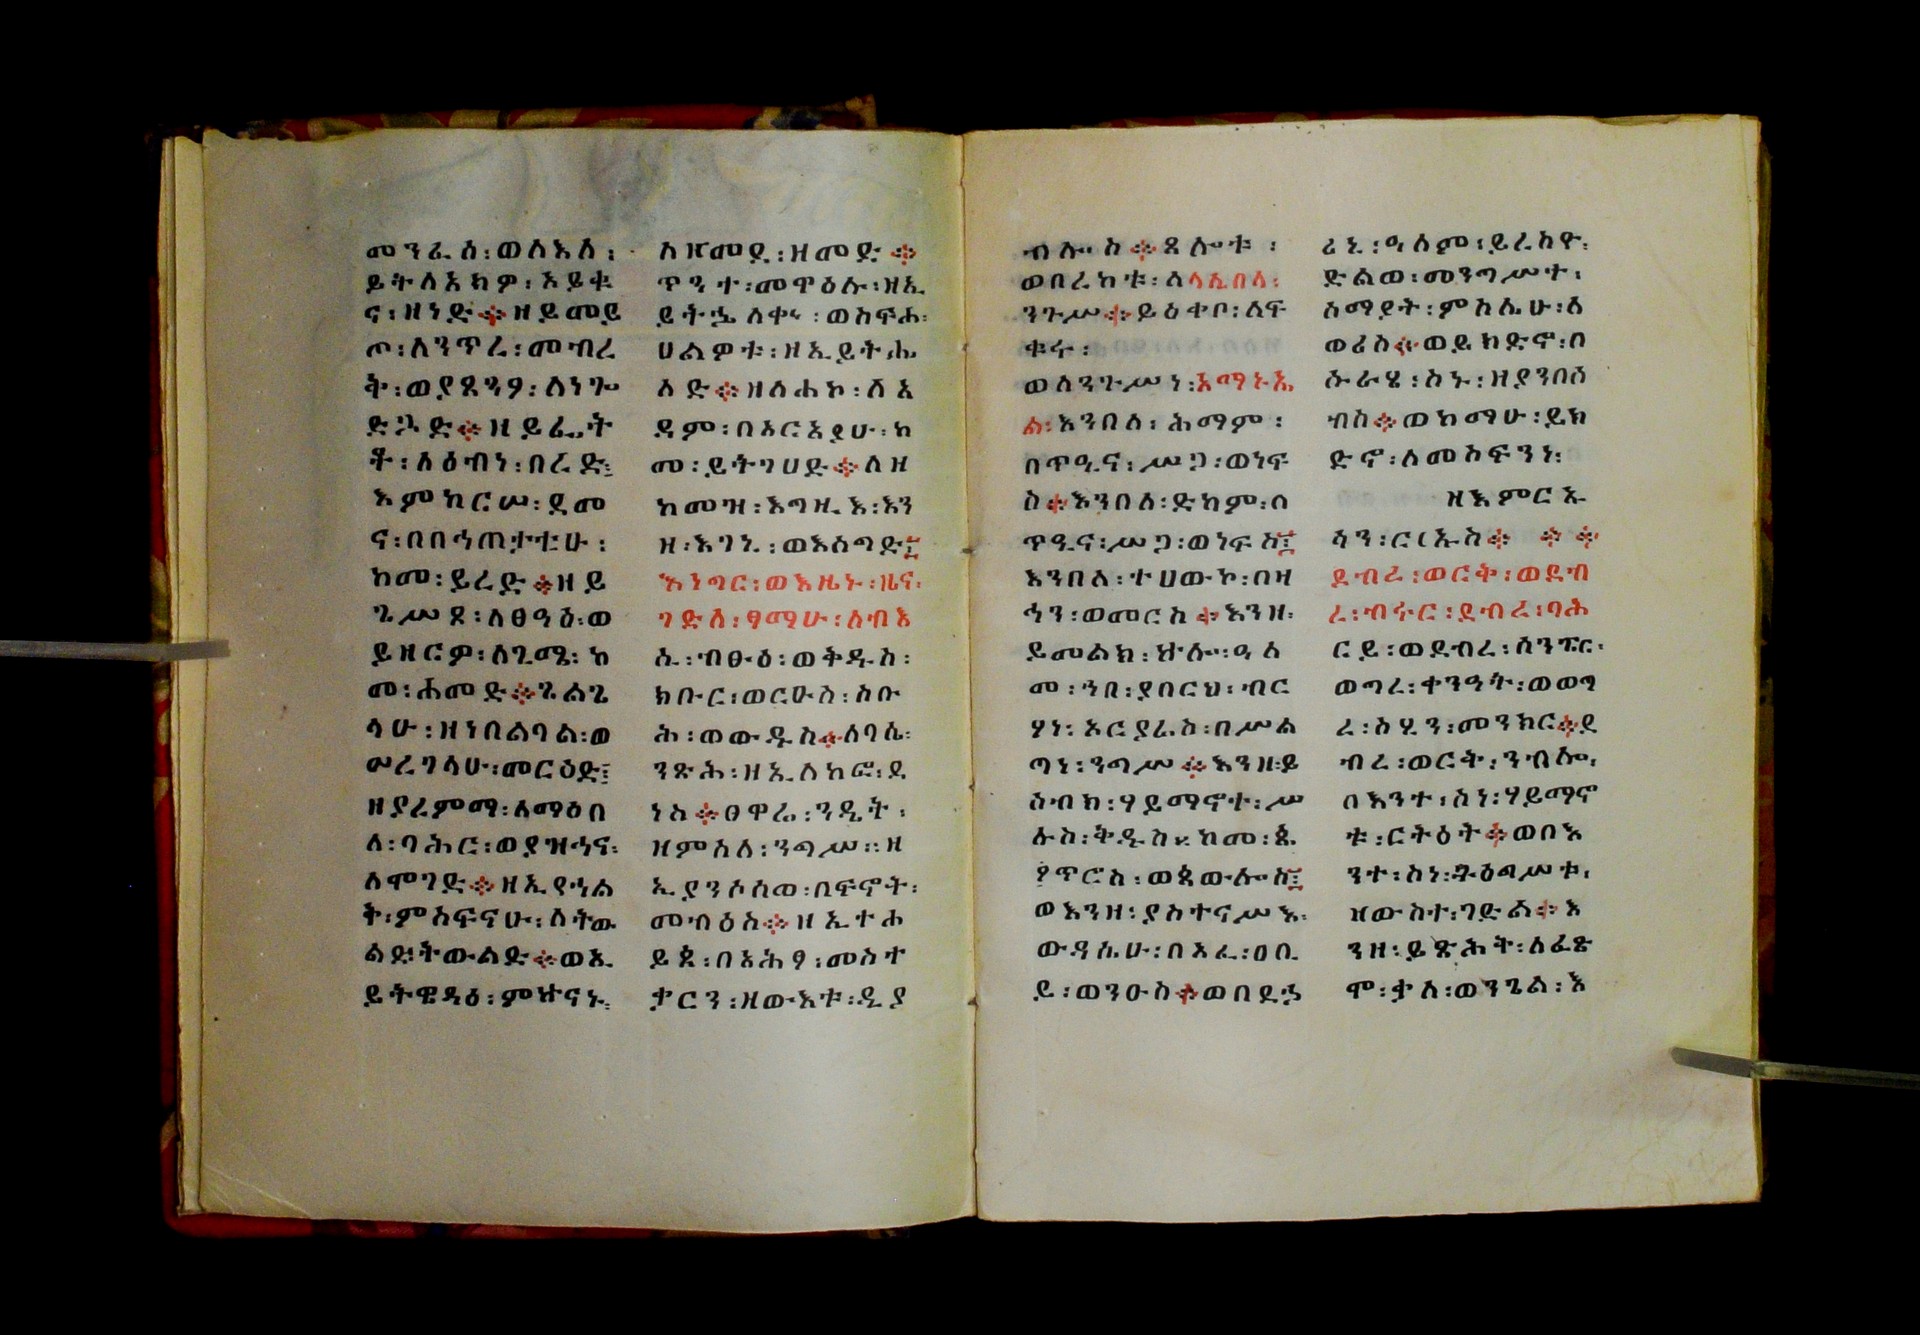 መንፈስ፡ወለእለ፡
ይትለአክዎ፡አይቴ
ና፡ዘነድ፨ዘይመይ
ጦ፡ለንጥረ፡መብረ
ቅ፡ወያጸንዖ፡ለነጐ
ድጓድ፨ዘይፌት
ት፡አዕብነ፡በረድ፤
እምከርሠ፡ደመ
ና፡በበኅጠታቲሁ፡
ከመ፡ይረድ፨ዘይ
ጌሥጾ፡ለፀዓዕ፡ወ
ይዘርዎ፡ለጊሜ፡ከ
መ፡ሐመድ፨ጌልጌ
ላሁ፡ዘነበልባል፡ወ
ሠረገላሁ፡መርዕድ፤
ዘያረምማ፡ለማዕበ
ለ፡ባሕር፡ወያዝኅና፡
ለሞገድ፨ዘኢየኀል
ቅ፡ምስፍናሁ፡ለትው
ልደ፡ትውልድ፨ወኢ
ይትዌዳዕ፡ምኵናኑ፡
ለዝመደ፡ዘመድ፨
ጥንተ፡መዋዕሉ፡ዘኢ
ይትኌለቀ፡ወስፍሐ፡
ሀልዎቱ፡ዘኢይትሐ
ለድ፨ዘለሐኮ፡ለአ
ዳም፡በአርአያሁ፡ከ
መ፡ይትገሀድ፨ለዘ
ከመዝ፡እግዚእ፡እን
ዘ፡እገኒ፡ወእሰግድ፤
እንግር፡ወእዜኑ፡ዜና፡
ገድለ፡ፃማሁ፡ለብእ
ሲ፡ብፁዕ፡ወቅዱስ፡
ክቡር፡ወርሁስ፡ስቡ
ሕ፡ወውዱስ፨ለባሴ፡
ንጽሕ፡ዘኢለከፎ፡ደ
ነስ፨ፀዋሬ፡ንዴት፡
ዘምስለ፡ንግሥ፡፡ዘ
ኢያንሶሰወ፡በፍኖት፡
መብዕስ፨ዘኢተሐ
ይጰ፡በአሕፃ፡መስተ
ቃርን፡ዘውእቱ፡ዲያ
ብሎስ፨ጸሎቱ፡
ወበረከቱ፡ለላሊበላ፡
ንጉሥ፨ይዕቀቦ፡ለፍ
ቁሩ፡
ወለንጉሥነ፡አማኑኤ
ል፡እንበለ፡ሕማም፡
በጥዒና፡ሥጋ፡ወነፍ
ስ፨እንበለ፡ድካም፡በ
ጥዒና፡ሥጋ፡ወነፍስ፤
እንበለ፡ተሀውኮ፡በዛ
ኅን፡ወመርሶ፨እንዘ፡
ይመልክ፡ኵሎ፡ዓለ
መ፡ኀበ፡ያበርህ፡ብር
ሃነ፡አርያሬስ፡በሥል
ጣነ፡ንግሥ፨እንዘ፡ይ
ሰብክ፡ሃይማኖተ፡ሥ
ሉስ፡ቅዱስ፡ከመ፡ጴ
ያጥሮስ፡ወጳውሎስ፤
ወእንዘ፡ያስተናሥእ፡
ውዳሴሁ፡በአፈ፡ዐቢ
ይ፡ወንዑስ፨ወበደኃ
ሪኒ፡ዓለም፡ይረስዮ፡
ድልወ፡መንግሥተ፡
ሰማያት፡ምስሌሁ፡ለ
ወሪስ፨ወይክድኖ፡በ
ሱራሄ፡ስኑ፡ዘያንበሰ
ብስ፨ወከማሁ፡ይክ
ድኖ፡ለመስፍንነ፡
ዘእምርኡ
ሳን፡ርእኡስ፨
ደብረ፡ወርቅ፡ወደብ
ረ፡ብሩር፡ደብረ፡ባሕ
ርይ፡ወደብረ፡ሰንፔር፡
ወጣረ፡ቀንዓት፡ወወግ
ረ፡ስሂን፡መንክር፨ደ
ብረ፡ወርቅ፡ንብሎ፡
በእንተ፡ስነ፡ሃይማኖ
ቱ፡ርትዕት፨ወበእ
ንተ፡ስነ፡ትዕግሥቱ፡
ዘውስተ፡ገድል፨እ
ንዘ፡ይጽሕት፡ለፈጽ
ሞ፡ቃለ፡ወንጌል፡እ